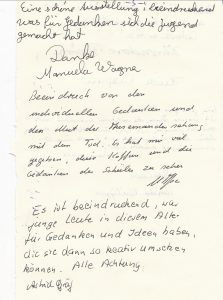 Eine schöne Ausstellung! beeindruckend
was für Gedanken sich die Jugend
gemacht hat
Danke
Manuela Wagna
Beeindruckt von den
individuellen Gedanken und
den Mut der Auseinandersetzung
mit dem Tod. Es hat mir viel
gegeben, diese Hoffen und die
Gedanken der Schüler zu sehen
Es ist beeindruckend, was
junge Leute in diesem Alter
für Gedanken und Ideen haben,
die sie dann so kreativ umsetzen
können. Alle Achtung
Astrid Gräf